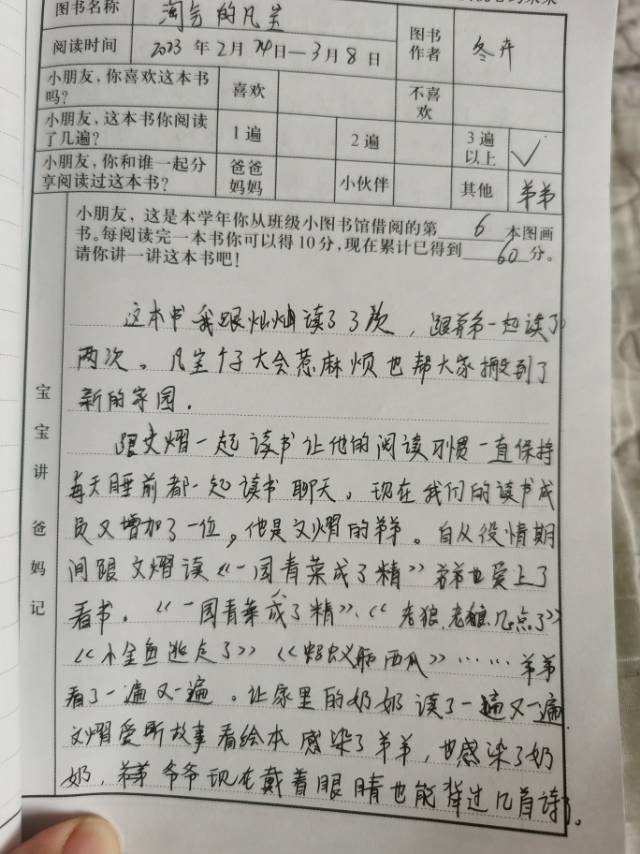 图书名称 淘气的凡笠
阅读时间 2023年2月24日—3月8日 图书作者 冬卉
小朋友，你喜欢这本书吗？ 喜欢 不喜欢
小朋友，这本书你阅读了几遍？ 1遍 2遍 3遍以上 ✓
小朋友，你和谁一起分享阅读过这本书？ 爸爸妈妈 小伙伴 其他 弟弟
小朋友，这是本学年你从班级小图书馆借阅的第 6 本图画
书。每阅读完一本书你可以得10分，现在累计已得到 60 分。
请你讲一讲这本书吧！
宝宝讲 爸妈记
这本书我跟灿灿读了3次，跟弟弟一起读了
两次。凡笠 大会惹麻烦也帮大家搬到了
新的家园。
跟文熠一起读书让他的阅读习惯一直保持
每天睡前都一起读书聊天。现在我们的读书成
员又增加了一位，他是文熠的弟弟。自从役情期
间跟文熠读《一园青菜成了精》弟弟也爱上了
看书。《一园青菜成了精》、《老狼，老狼几点了》
《小金鱼逃走了》《蚂蚁和西瓜》……弟弟
看了一遍又一遍。让家里的奶奶读了一遍又一遍
文熠爱听故事看绘本感染了弟弟，也感染了奶
奶，爷爷现在戴着眼睛也能背过几首诗了。